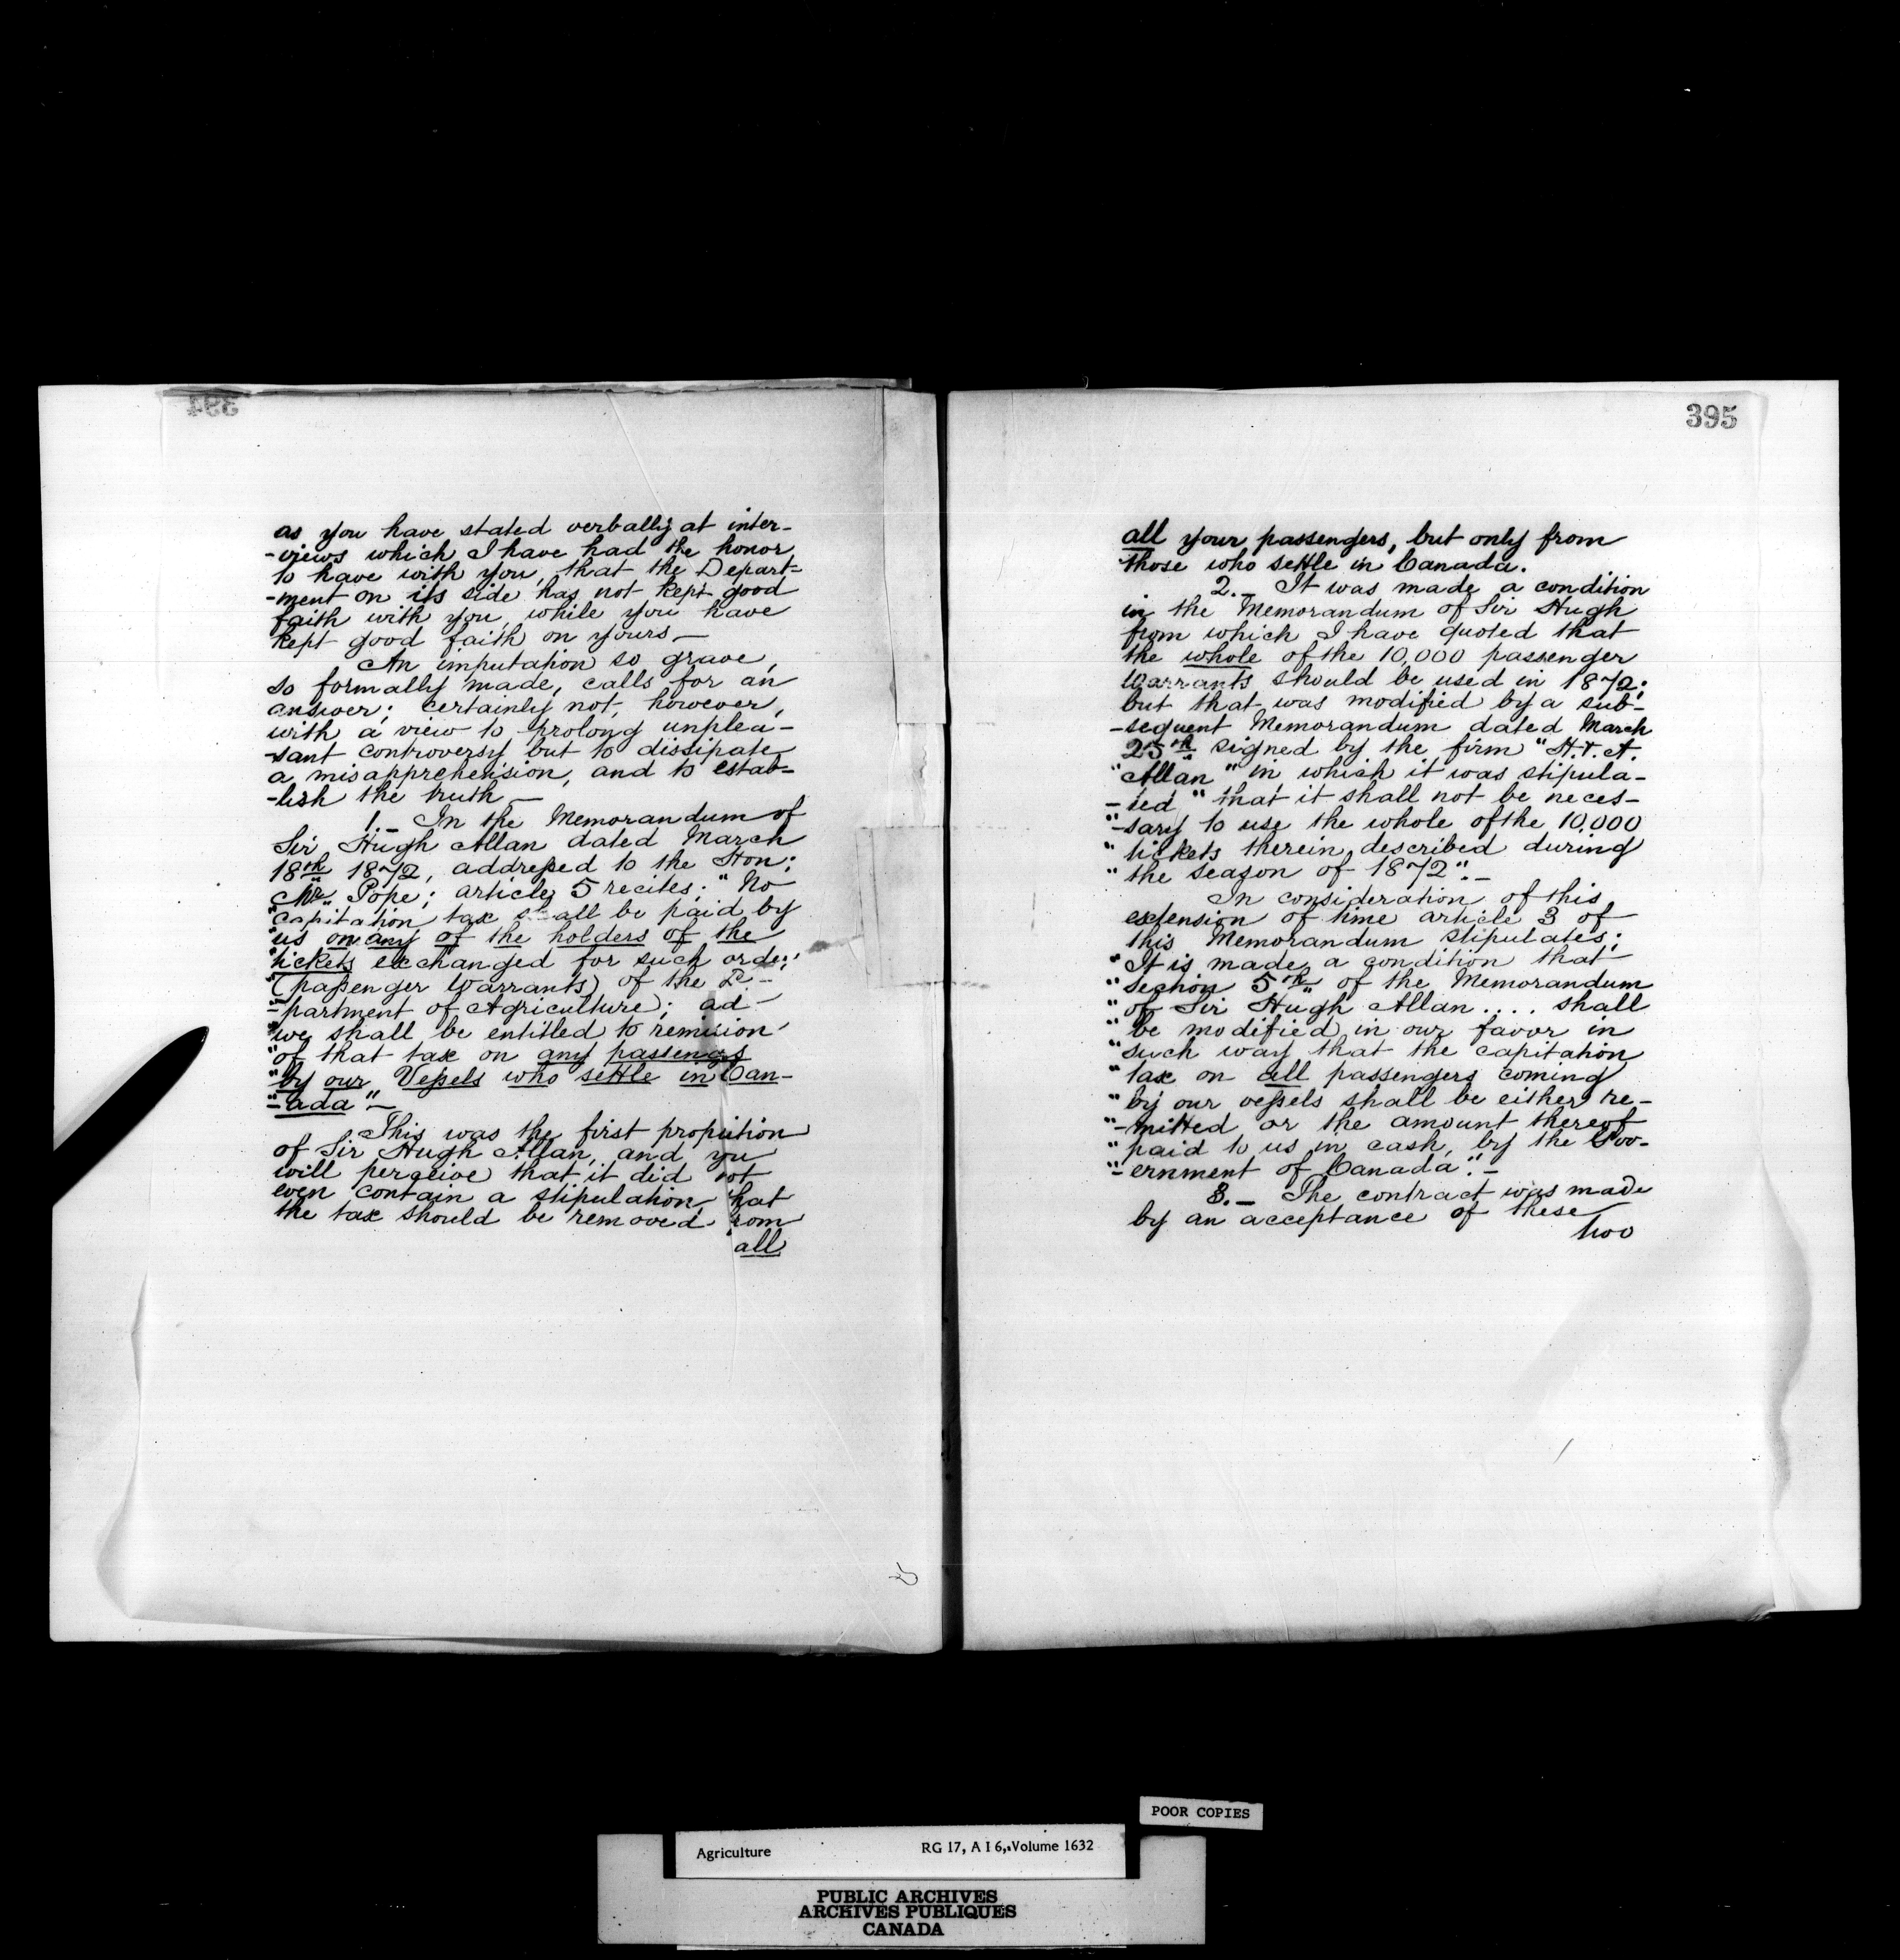 394
as you have stated verbally at inter-
-views which I have had the honor
to have with you, that the Depart-
-ment on its side has not kept good
faith with you, while you have
kept good faith on yours —
An imputation so grave,
so formally made, calls for an
answer; certainly not, however,
with a view to prolong unplea-
-sant controversy but to dissipate
a misapprehension, and to estab-
-lish the truth —
1.— In the Memorandum of
Sir Hugh Allan dated March
18th 1872, addressed to the Hon:
Mr Pope; article 5 recites: "No
"capitation tax shall be paid by
"us on any of the holders of the
"tickets exchanged for such orders
"(passenger Warrants) of the De-
"-partment of Agriculture); ad
"we shall be entitled to remission
"of that tax on any passengs
"by our Vessels who settle in Can-
"-ada" —
This was the first propsition
of Sir Hugh Allan, and you
will perceive that it did not
even contain a stipulation that
the tax should be removed from
all
395
all your passengers, but only from
those who settle in Canada.
2.— It was made a condition
in the Memorandum of Sir Hugh
from which I have quoted that
the whole of the 10,000 passenger
Warrants should be used in 1872;
but that was modified by a sub-
-sequent Memorandum dated March
25th signed by the firm "H. & A.
"Allan" in which it was stipula-
-ted "that it shall not be neces-
"-sary to use the whole of the 10,000
"tickets therein described during
"the season of 1872". —
In consideration of this
extension of time article 3 of
this Memorandum stipulates:
"It is made a condition that
"section 5th of the Memorandum
"of Sir Hugh Allan .... shall
"be modified in our favor in
"such way that the capitation
"tax on all passengers coming
"by our vessels shall be either re-
"-mitted or the amount thereof
"paid to us in cash, by the Gov-
"-ernment of Canada". —
3.— The contract was made
by an acceptance of these
two
POOR COPIES
Agriculture RG 17, A I 6, Volume 1632
PUBLIC ARCHIVES
ARCHIVES PUBLIQUES
CANADA